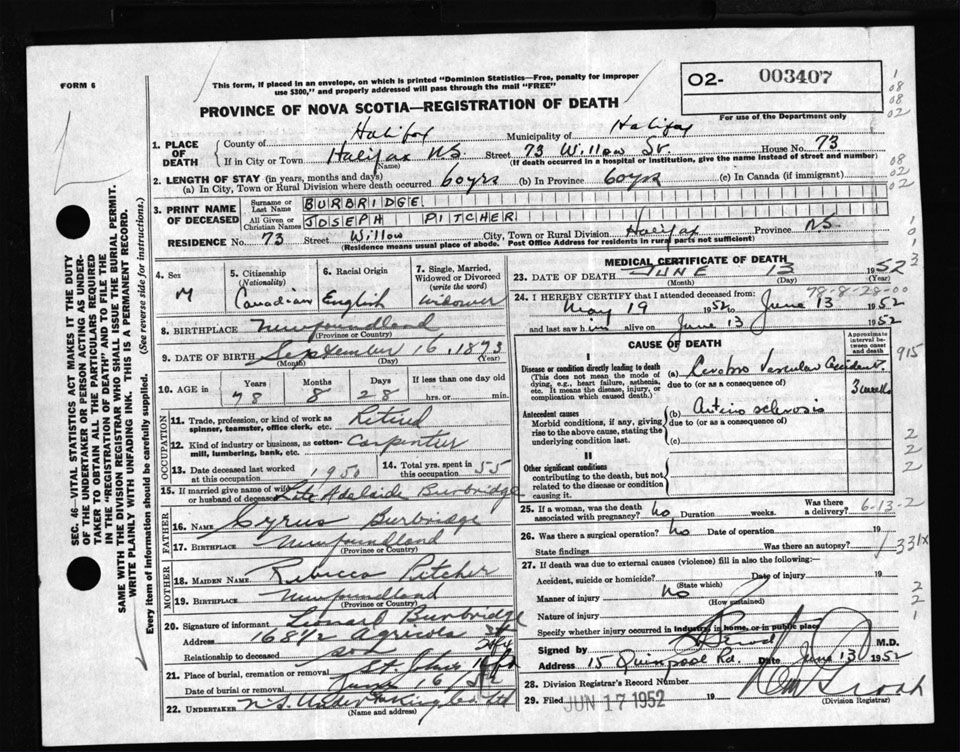 FORM 6
This form, if placed in an envelope, on which is printed "Dominion Statistics—Free, penalty for improper
use $300," and properly addressed will pass through the mail "FREE"
O2- 003407
For use of the Department only
PROVINCE OF NOVA SCOTIA—REGISTRATION OF DEATH
1. PLACE OF DEATH
County of Halifax Municipality of Halifax
If in City or Town Halifax N.S. Street 73 Willow St. House No. 73
(Name) (If death occurred in a hospital or institution, give the name instead of street and number)
2. LENGTH OF STAY (in years, months and days)
(a) In City, Town or Rural Division where death occurred 60 yrs (b) In Province 60 yrs (c) In Canada (if immigrant)
3. PRINT NAME OF DECEASED
Surname or Last Name BURBRIDGE
All Given or Christian Names JOSEPH PITCHER
RESIDENCE No. 73 Street Willow City, Town or Rural Division Halifax Province N.S.
(Residence means usual place of abode. Post Office Address for residents in rural parts not sufficient)
4. Sex M
5. Citizenship (Nationality) Canadian
6. Racial Origin English
7. Single, Married, Widowed or Divorced (write the word) Widower
8. BIRTHPLACE Newfoundland
(Province or Country)
9. DATE OF BIRTH September 16, 1873
(Month) (Day) (Year)
10. AGE in Years 78 Months 8 Days 28 If less than one day old hrs. or min.
OCCUPATION
11. Trade, profession, or kind of work as spinner, teamster, office clerk, etc. Retired
12. Kind of industry or business, as cotton-mill, lumbering, bank, etc. Carpenter
13. Date deceased last worked at this occupation 1950
14. Total yrs. spent in this occupation 55
15. If married give name of wife or husband of deceased Adelaide Burbridge
FATHER
16. NAME Cyrus Burbridge
17. BIRTHPLACE Newfoundland
(Province or Country)
MOTHER
18. MAIDEN NAME Rebecca Pitcher
19. BIRTHPLACE Newfoundland
(Province or Country)
20. Signature of informant Leonard Burbridge
Address 168½ Agricola St
Relationship to deceased son
21. Place of burial, cremation or removal St. Johns
Date of burial or removal June 16/52
22. UNDERTAKER N.S. Undertaking Co Ltd
(Name and address)
MEDICAL CERTIFICATE OF DEATH
23. DATE OF DEATH JUNE 13 1952
(Month) (Day) (Year)
78-8-28-00
24. I HEREBY CERTIFY that I attended deceased from:
May 19 1952 to June 13 1952
and last saw him alive on June 13 1952
CAUSE OF DEATH
Approximate interval between onset and death
I
Disease or condition directly leading to death
(This does not mean the mode of dying, e.g., heart failure, asthenia, etc. It means the disease, injury, or complication which caused death.)
(a) Cerebro Vascular Accident. 3 weeks
due to (or as a consequence of)
Antecedent causes
Morbid conditions, if any, giving rise to the above cause, stating the underlying condition last.
(b) Arterio sclerosis
due to (or as a consequence of)
(c)
II
Other significant conditions contributing to the death, but not related to the disease or condition causing it.
25. If a woman, was the death associated with pregnancy? No Duration weeks. Was there a delivery?
6-13-2
26. Was there a surgical operation? No Date of operation 19
State findings Was there an autopsy?
331X
27. If death was due to external causes (violence) fill in also the following:—
Accident, suicide or homicide? Date of injury 19
(State which)
Manner of injury No
(How sustained)
Nature of injury
Specify whether injury occurred in industry, in home, or in public place
Signed by M.D.
Address 15 Quinpool Rd. Date June 13 1952
28. Division Registrar's Record Number
29. Filed JUN 17 1952 19
(Division Registrar)
915
SEC. 46—VITAL STATISTICS ACT MAKES IT THE DUTY
OF THE UNDERTAKER OR PERSON ACTING AS UNDER-
TAKER TO OBTAIN ALL THE PARTICULARS REQUIRED
IN THE "REGISTRATION OF DEATH" AND TO FILE THE
SAME WITH THE DIVISION REGISTRAR WHO SHALL ISSUE THE BURIAL PERMIT.
WRITE PLAINLY WITH UNFADING INK. THIS IS A PERMANENT RECORD.
Every item of information should be carefully supplied. (See reverse side for instructions.)